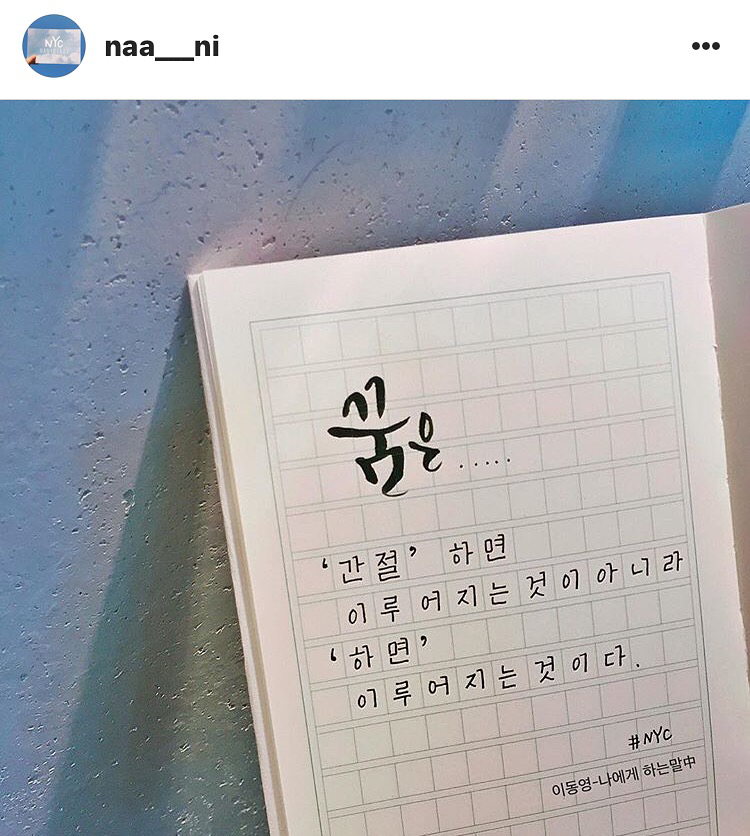 NYC
naa__ni
꿈은.....
‘간절’ 하면
이루어지는것이아니라
‘하면’
이루어지는것이다.
#NYC
이동영-나에게 하는말中